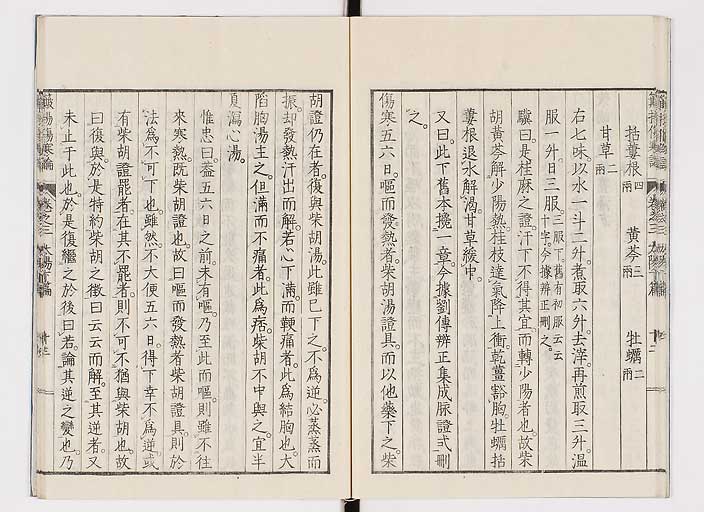 括蔞根四兩　黃芩三兩　牡蠣二兩
甘草二兩
右七味以水一斗二升煮取六升去滓再煎取三升溫
服一升日三服三服下舊有初服云云十字今據辨正刪之
驥曰是桂麻之證汗下不得其宜而轉少陽者也故柴
胡黃芩解少陽熱桂枝達氣降上衝乾薑豁胸牡蠣括
蔞根退水解渴甘草緩中
又曰此下舊本攙一章今據劉傳辨正集成脉證式刪
之
傷寒五六日嘔而發熱者柴胡湯證具而以他藥下之柴
胡證仍在者復與柴胡湯此雖已下之不爲逆必蒸蒸而
振却發熱汗出而解若心下滿而鞕痛者此爲結胸也大
陷胸湯主之但滿而不痛者此爲痞柴胡不中與之宜半
夏瀉心湯
惟忠曰蓋五六日之前未有嘔乃至此而嘔則雖不往
來寒熱既柴胡證也故曰嘔而發熱者柴胡證具則於
法爲不可下也雖然不大便五六日得下幸不爲逆或
有柴胡證罷者在其不罷者則不可不猶與柴胡也故
曰復與於是特約柴胡之徵曰云云而解至其逆者又
未止于此也於是復繼之於後曰若論其逆之變也乃